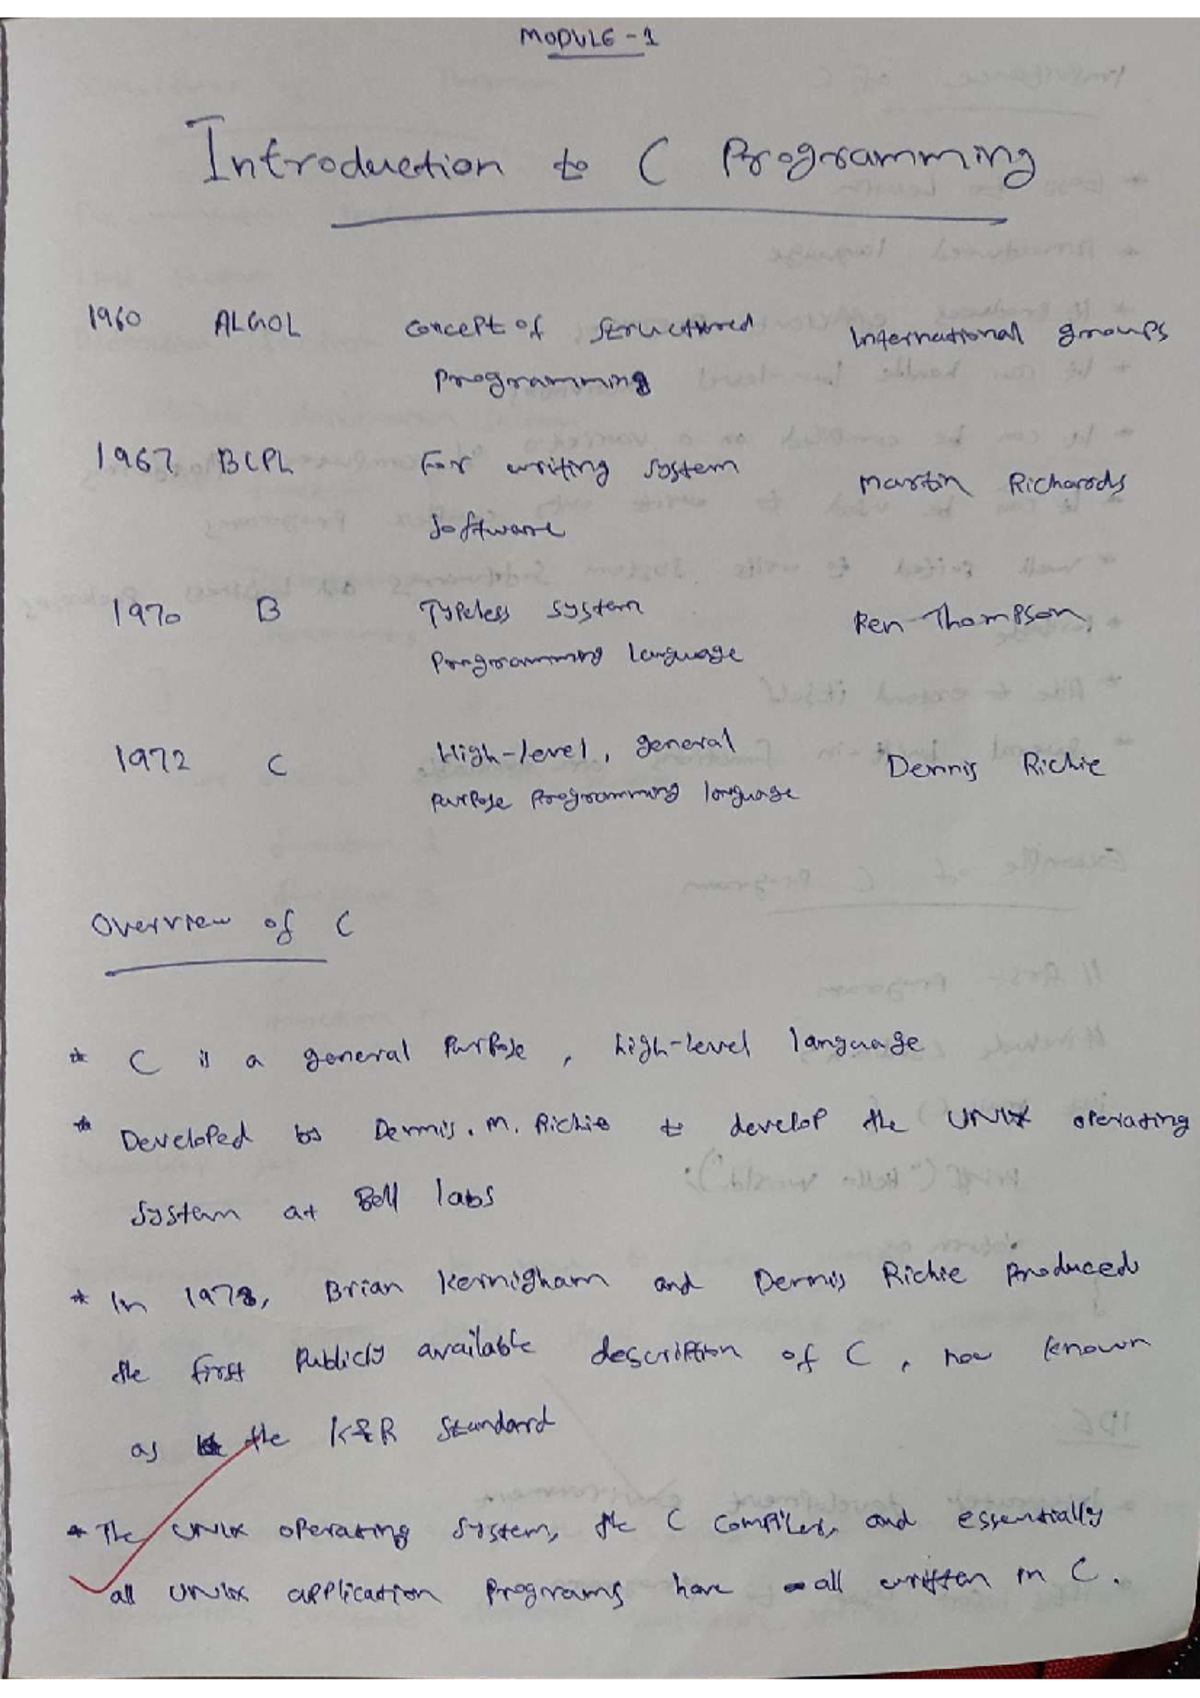 MODULE - 1
Introduction to C Programming
1960 ALGOL concept of structured International groups
programming
1967 BCPL For writing system Martin Richards
software
1970 B Typeless system Ken Thompson
programming language
1972 C High-level, general Dennis Richie
purpose programming language
Overview of C
* C is a general purpose, high-level language
* Developed by Dennis. M. Richie to develop the UNIX operating
system at Bell labs
* In 1978, Brian Kernigham and Dennis Richie produced
the first publicly available description of C, now known
as the K&R standard
* The UNIX operating system, the C compiler, and essentially
all UNIX application programs have all written in C.